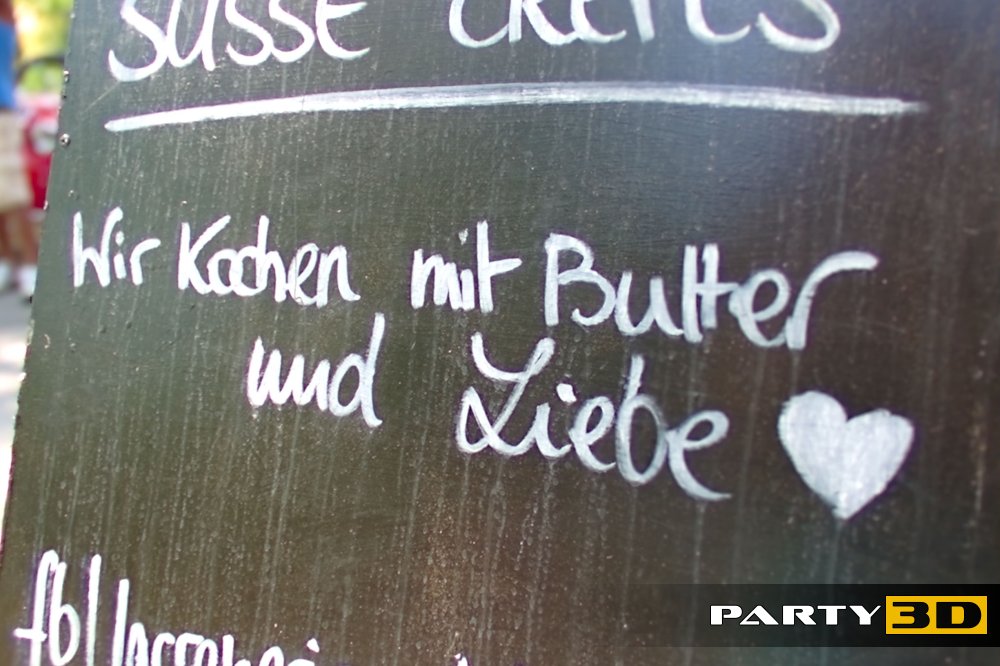 SÜSSE CRÊPES
Wir Kochen mit Butter
und Liebe
PARTY 3D